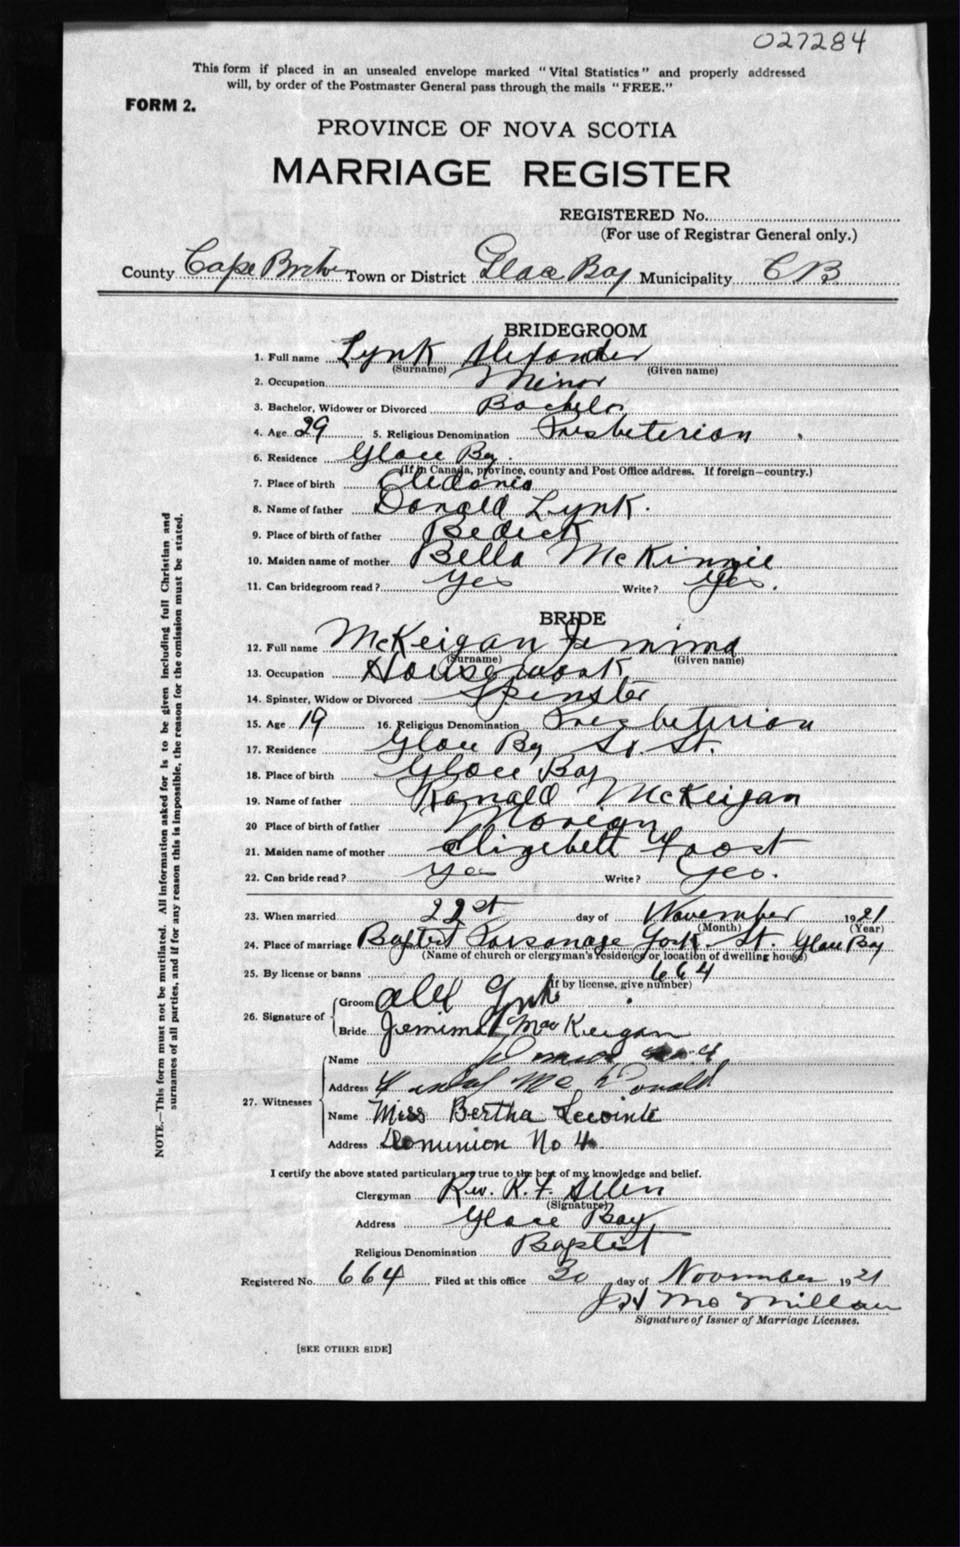 027284
This form if placed in an unsealed envelope marked "Vital Statistics" and properly addressed
will, by order of the Postmaster General pass through the mails "FREE."
FORM 2.
PROVINCE OF NOVA SCOTIA
MARRIAGE REGISTER
REGISTERED No.
(For use of Registrar General only.)
County Cape Breton Town or District Glace Bay Municipality C B
BRIDEGROOM
1. Full name Lynk Alexander
(Surname) (Given name)
2. Occupation Minor
3. Bachelor, Widower or Divorced Bachelor
4. Age 29 5. Religious Denomination Presbeterian
6. Residence Glace Bay.
(If in Canada, province, county and Post Office address. If foreign—country.)
7. Place of birth
8. Name of father Donald Lynk.
9. Place of birth of father Bedick
10. Maiden name of mother Bella McKinnie
11. Can bridegroom read? Yes Write? Yes.
BRIDE
12. Full name McKeigan Jemima
(Surname) (Given name)
13. Occupation Housework
14. Spinster, Widow or Divorced Spinster
15. Age 19 16. Religious Denomination Presbeterian
17. Residence Glace Bay St.
18. Place of birth Glace Bay
19. Name of father Ronald McKeigan
20 Place of birth of father Morien
21. Maiden name of mother Elizebett Frost
22. Can bride read? Yes Write? Yes.
23. When married 22st day of November 1921
(Month) (Year)
24. Place of marriage Baptist Parsonage York St. Glace Bay
(Name of church or clergyman's residence or location of dwelling house)
25. By license or banns 664
(If by license, give number)
26. Signature of Groom Alex Lynk
Bride Jemima MacKeigan
27. Witnesses
Name
Address McDonald
Name Miss Bertha Lecointe
Address Dominion No 4
I certify the above stated particulars are true to the best of my knowledge and belief.
Clergyman Rev. R. F. Allen
(Signature)
Address Glace Bay
Religious Denomination Baptist
Registered No. 664 Filed at this office 30 day of November 1921
J H McMillan
Signature of Issuer of Marriage Licenses.
[SEE OTHER SIDE]
NOTE.—This form must not be mutilated. All information asked for is to be given including full Christian and
surnames of all parties, and if for any reason this is impossible, the reason for the omission must be stated.